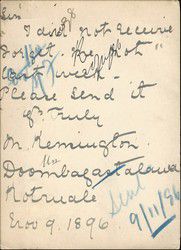 Sir
I did not receive
"Forget Me Not"
last week.
Please send it
Yrs Truly
M. Kemington.
Doombagastalawa
Kotmale
Nov 9. 1896
Sent
9/11/96